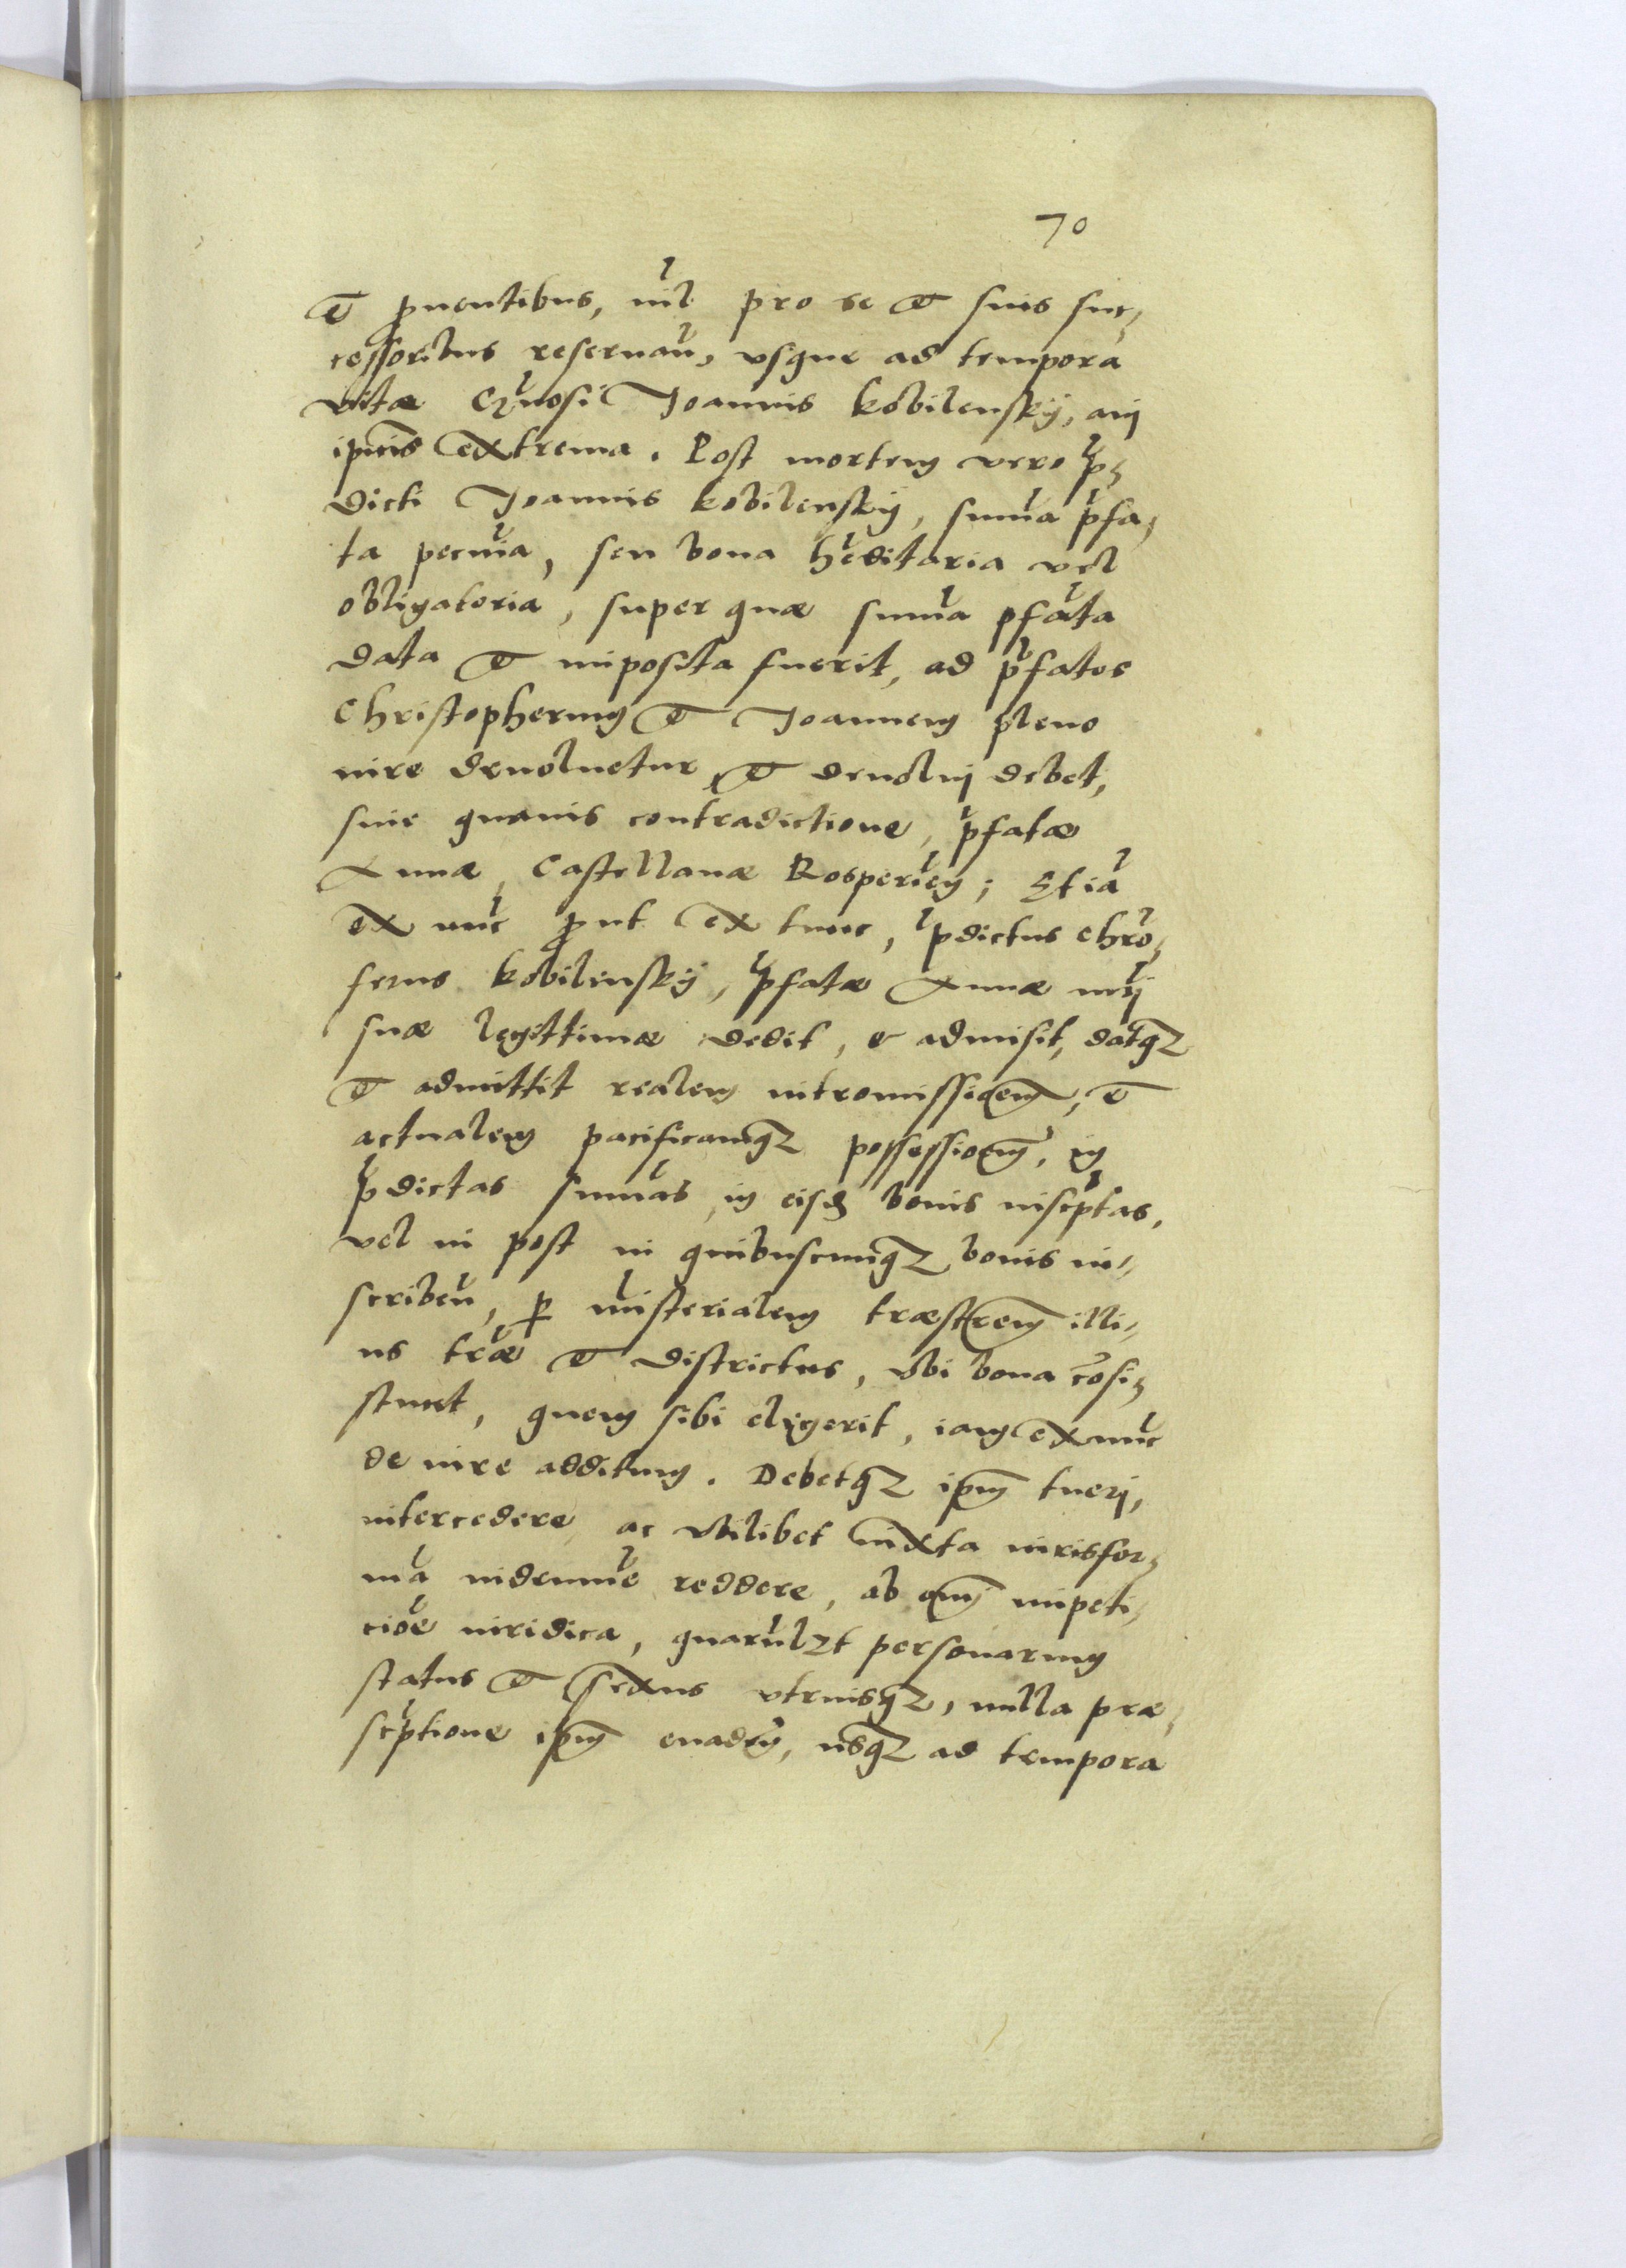 70
et prouentibus, nil pro se et suis suc,
cessoribus reseruan, vsque ad tempora
vitæ Gnosi Joannis kobilenský, aui
ipsius extrema. Post mortem vero p,
dicti Joannis kobilenský, suma pfa,
ta pecunia, seu bona hæditaria vel
obligatoria, super quæ suma pfata
data et imposita fuerit, ad pfatos
Christopherum et Joannem pleno
iure deuoluetur et deuolui debet,
sine quauis contradictione, pfatæ
Annæ, Castellanæ Rosperien; Etia
ex nuc prout ex tunc, pdictus chro,
ferus kobilenský, pfatæ Annæ uxi
suæ legittimæ dedit, & admisit, datq3
et admittit realem intromissioem, et
actualem pacificamq3 possessionem, in
pdictas sumas, in eisd bonis inscptas,
vel in post in quibuscumq3 bonis in,
scriben, p misterialem træstrem illi,
us træ et districtus, vbi bona cosi,
stunt, quem sibi elegerit, iam ex nuc
de iure additum. Debetq3 ipam tueri,
intercedere, ac vbilibet iuxta iuris for,
ma indemne reddere, ab omni impeti,
cioe iuridica, quarulzt personarum
status et sexus vtriusq3, nulla præ,
scptione ipam euaden, usq3 ad tempora